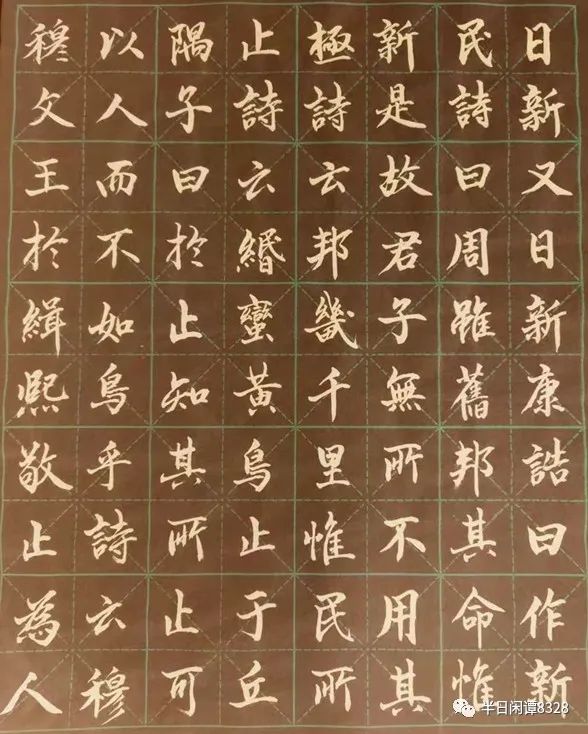 日新又日新康誥曰作新
民詩曰周雖舊邦其命惟
新是故君子無所不用其
極詩云邦畿千里惟民所
止詩云緡蠻黃鳥止于丘
隅子曰於止知其所止可
以人而不如鳥乎詩云穆
穆文王於緝熙敬止為人
半日闲谭8328